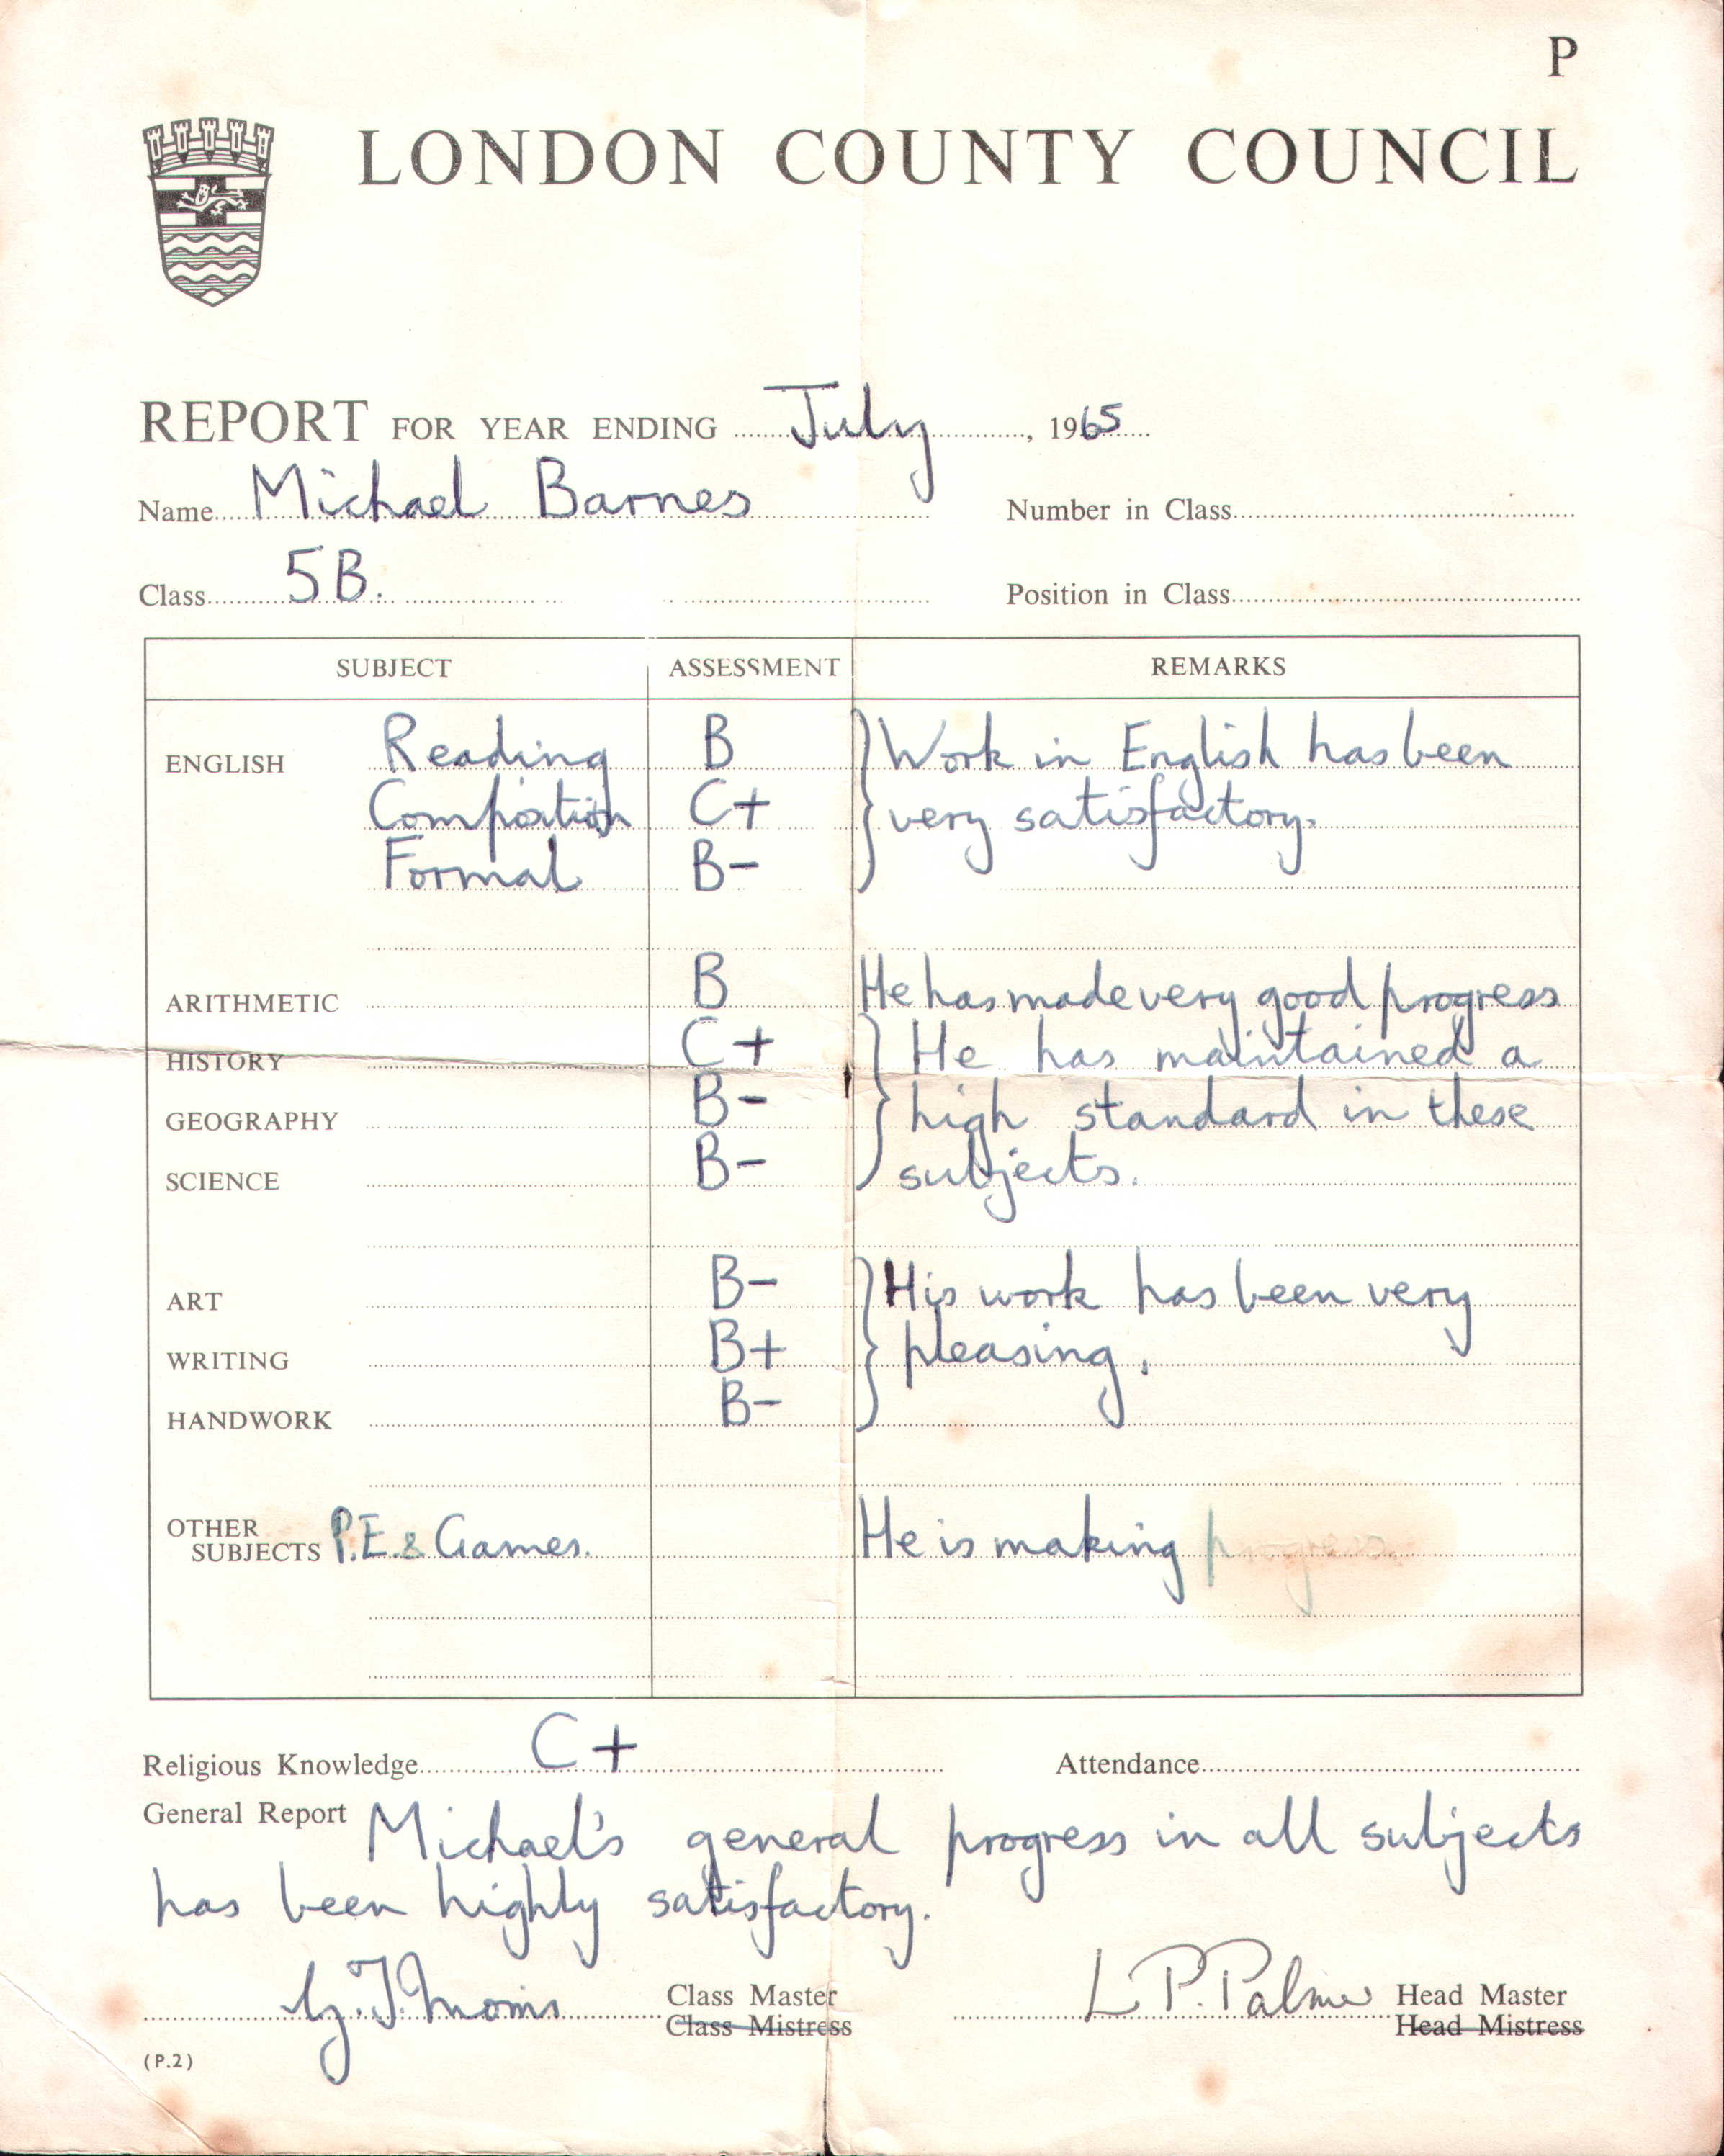 P
LONDON COUNTY COUNCIL
REPORT FOR YEAR ENDING July, 1965
Name Michael Barnes Number in Class
Class 5B. Position in Class
SUBJECT ASSESSMENT REMARKS
ENGLISH Reading B Work in English has been
Composition C+ very satisfactory.
Formal B-
ARITHMETIC B He has made very good progress
HISTORY C+ He has maintained a
GEOGRAPHY B- high standard in these
SCIENCE B- subjects.
ART B- His work has been very
WRITING B+ pleasing.
HANDWORK B-
OTHER
SUBJECTS P.E. & Games. He is making progress.
Religious Knowledge C+ Attendance
General Report Michael's general progress in all subjects
has been highly satisfactory.
G.J. Morris Class Master L P. Palmer Head Master
Class Mistress Head Mistress
(P.2)